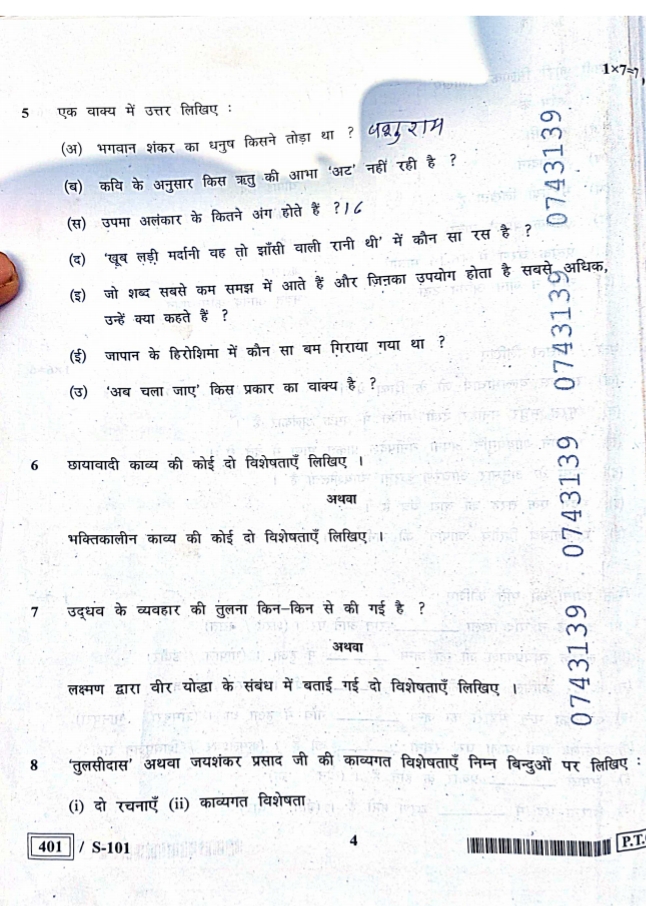 1×7=7
5 एक वाक्य में उत्तर लिखिए :
(अ) भगवान शंकर का धनुष किसने तोड़ा था ?
(ब) कवि के अनुसार किस ऋतु की आभा 'अट' नहीं रही है ?
(स) उपमा अलंकार के कितने अंग होते हैं ?
(द) 'खूब लड़ी मर्दानी वह तो झाँसी वाली रानी थी' में कौन सा रस है ?
(इ) जो शब्द सबसे कम समझ में आते हैं और जिनका उपयोग होता है सबसे अधिक,
उन्हें क्या कहते हैं ?
(ई) जापान के हिरोशिमा में कौन सा बम गिराया गया था ?
(उ) 'अब चला जाए' किस प्रकार का वाक्य है ?
6 छायावादी काव्य की कोई दो विशेषताएँ लिखिए ।
अथवा
भक्तिकालीन काव्य की कोई दो विशेषताएँ लिखिए ।
7 उद्धव के व्यवहार की तुलना किन-किन से की गई है ?
अथवा
लक्ष्मण द्वारा वीर योद्धा के संबंध में बताई गई दो विशेषताएँ लिखिए ।
8 'तुलसीदास' अथवा जयशंकर प्रसाद जी की काव्यगत विशेषताएँ निम्न बिन्दुओं पर लिखिए :
(i) दो रचनाएँ (ii) काव्यगत विशेषता
401 / S-101
4
P.T.
0743139
0743139
0743139
0743139